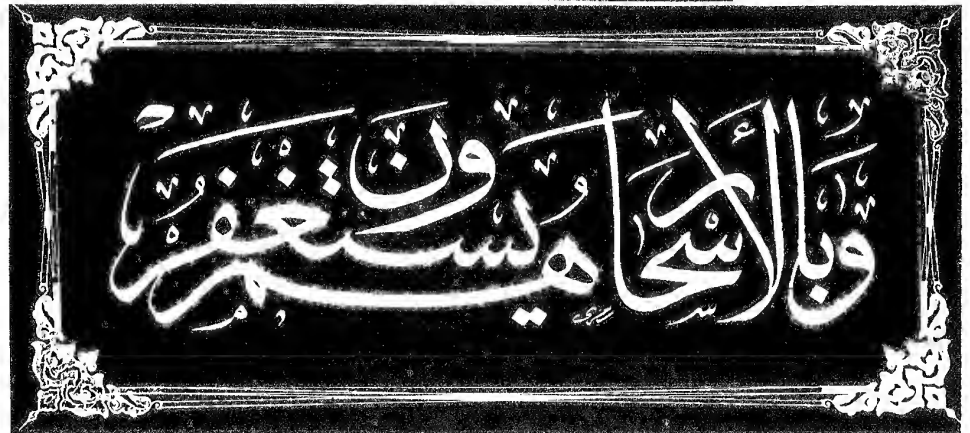 وبالأسحار هم يستغفرون